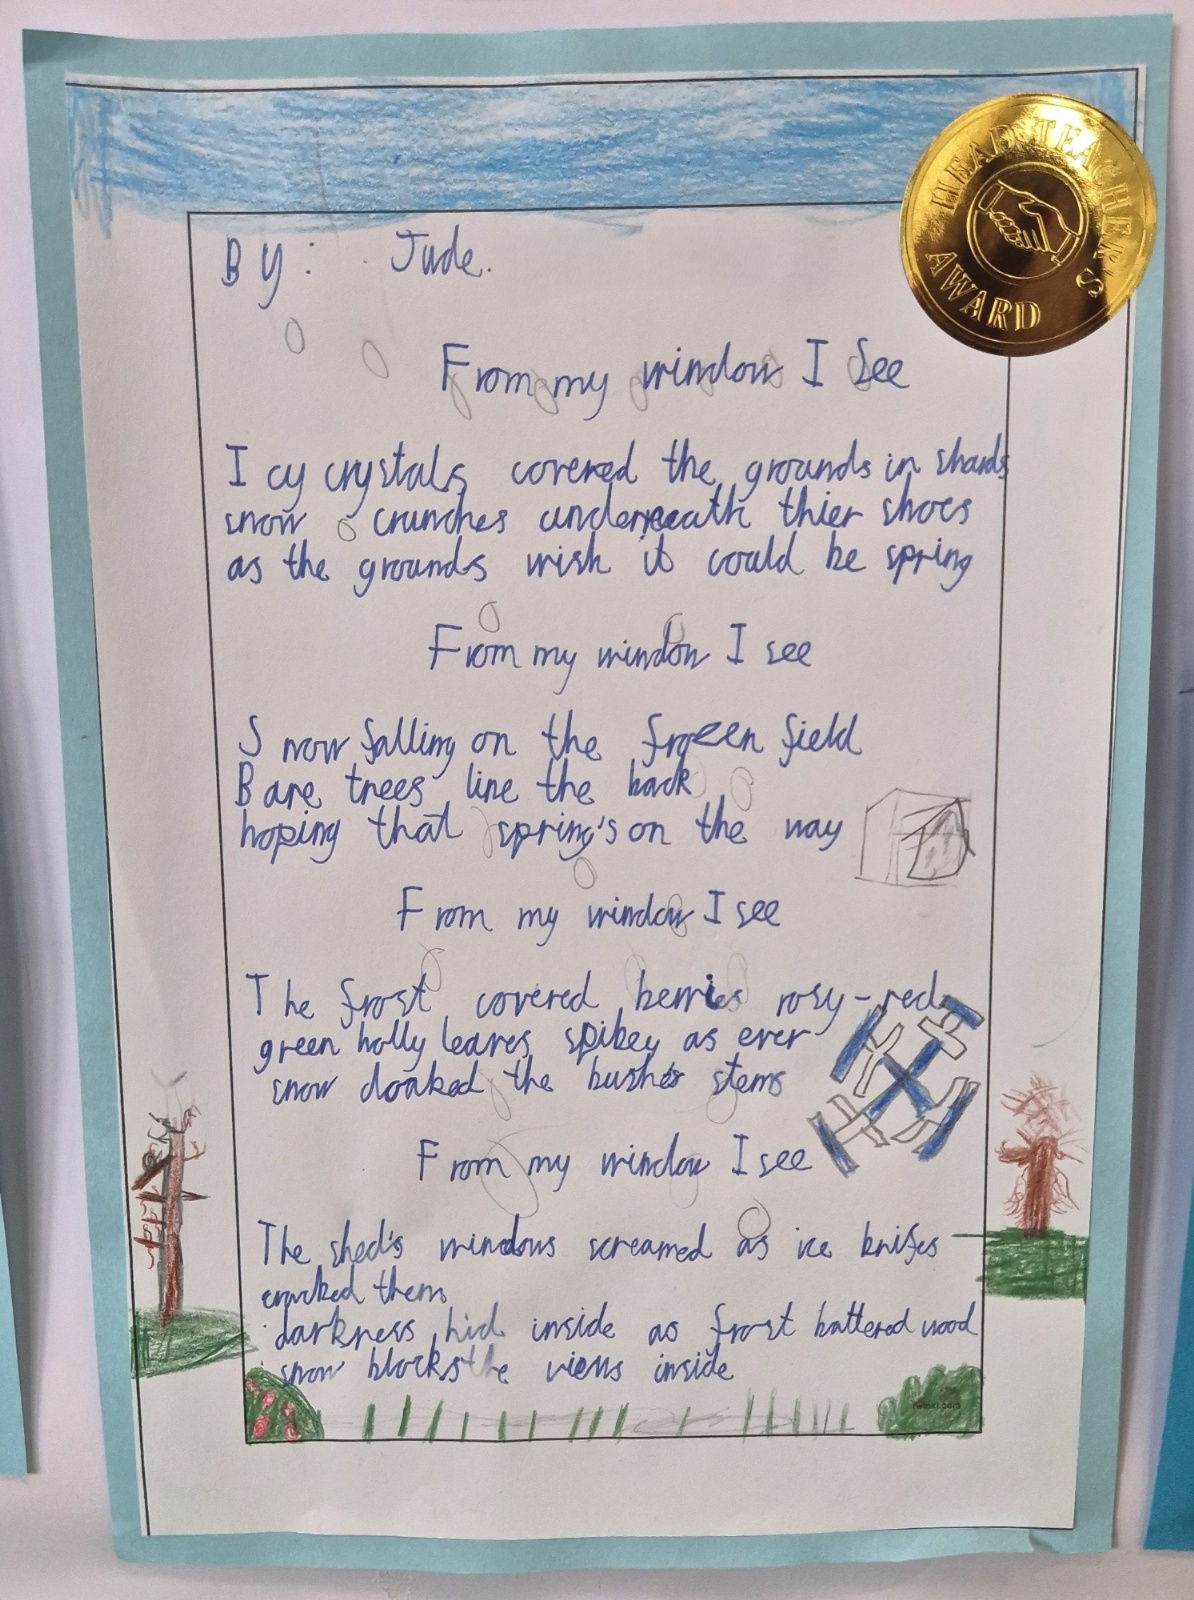 HEADSTEACHER'S AWARD
By: Jude.
From my window I see
Icy crystals covered the grounds in shards
snow crunches underneath thier shoes
as the grounds wish it could be spring
From my window I see
Snow falling on the frozen field
Bare trees line the back
hoping that spring's on the way
From my window I see
The frost covered berries rosy-red
green holly leaves spikey as ever
snow cloaked the bushes stems
From my window I see
The shed's windows screamed as ice knifes
cracked them
darkness hid inside as frost battered wood
snow blocks the views inside